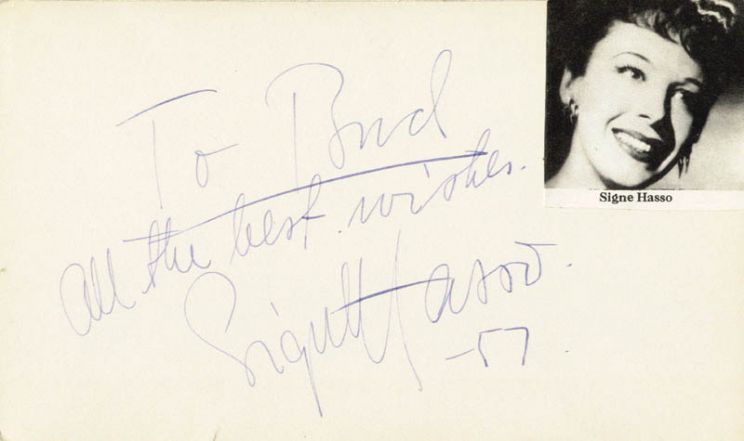 To Bud
All the best wishes.
Signe Hasso.
-57.
Signe Hasso